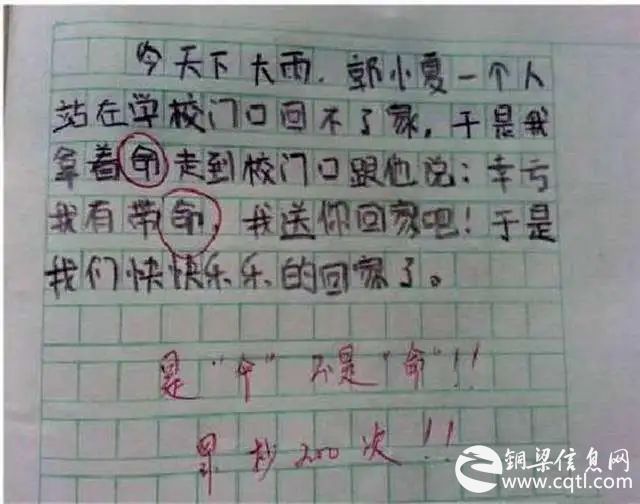 今天下大雨，郭小夏一个人
站在学校门口回不了家，于是我
拿着命走到校门口跟他说：幸亏
我有带命，我送你回家吧！于是
我们快快乐乐的回家了。
是“伞”不是“命”！！
罚抄200次！！
铜梁信息网
www.cqtl.com